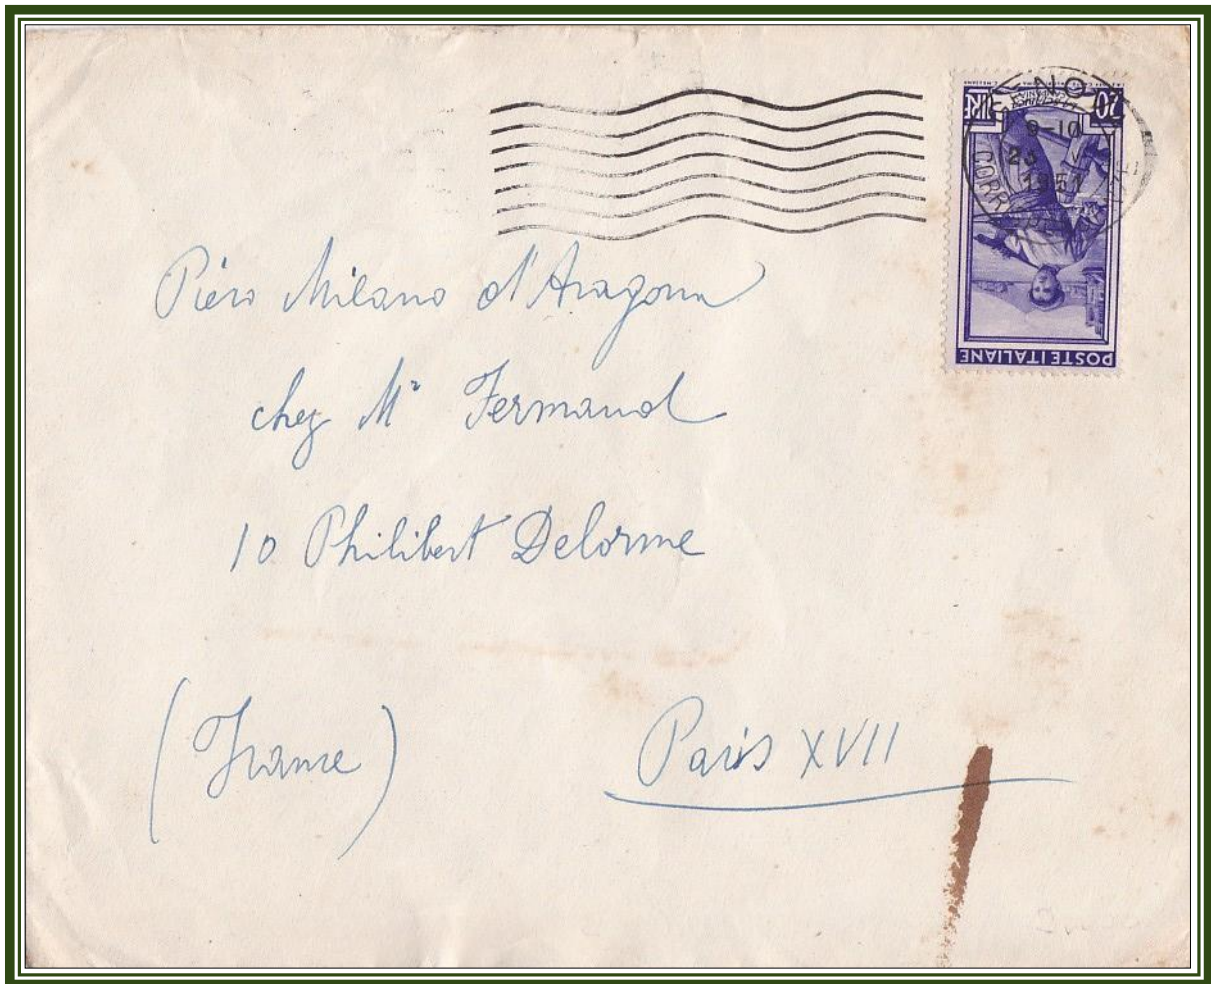 9-10
1951
20 LIRE
POSTE ITALIANE
Piero Milano d'Aragona
chez Mr Fermand
10 Philibert Delorme
(France)
Paris XVII